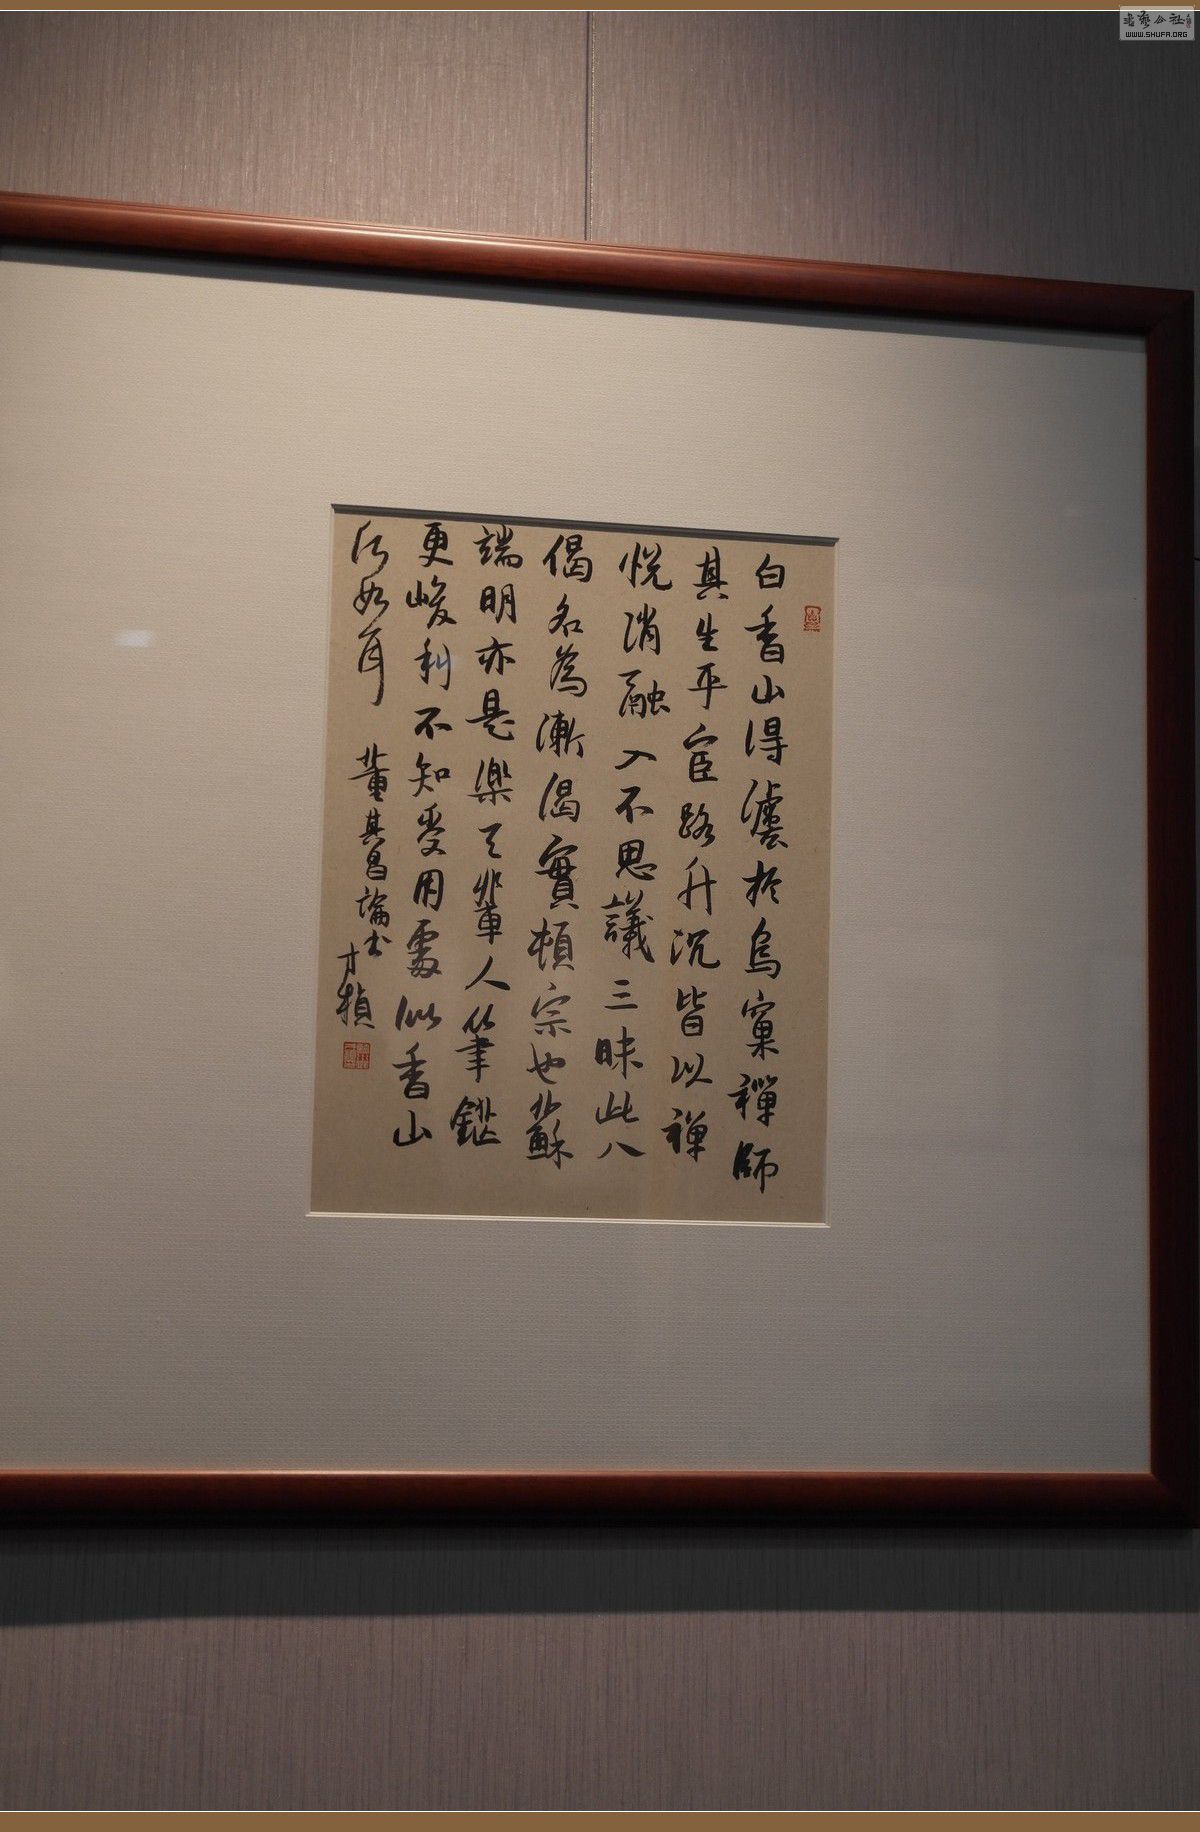 白香山得法於鳥窠禪師
其生平宦路升沉皆以禪
悅消融入不思議三昧此八
偈名為漸偈實頓宗也蘇
端明亦是樂天輩人筆鋒
更峻利不知受用處似香山
何如耳
董其昌論書
才楨
書藝公社
WWW.SHUFA.ORG